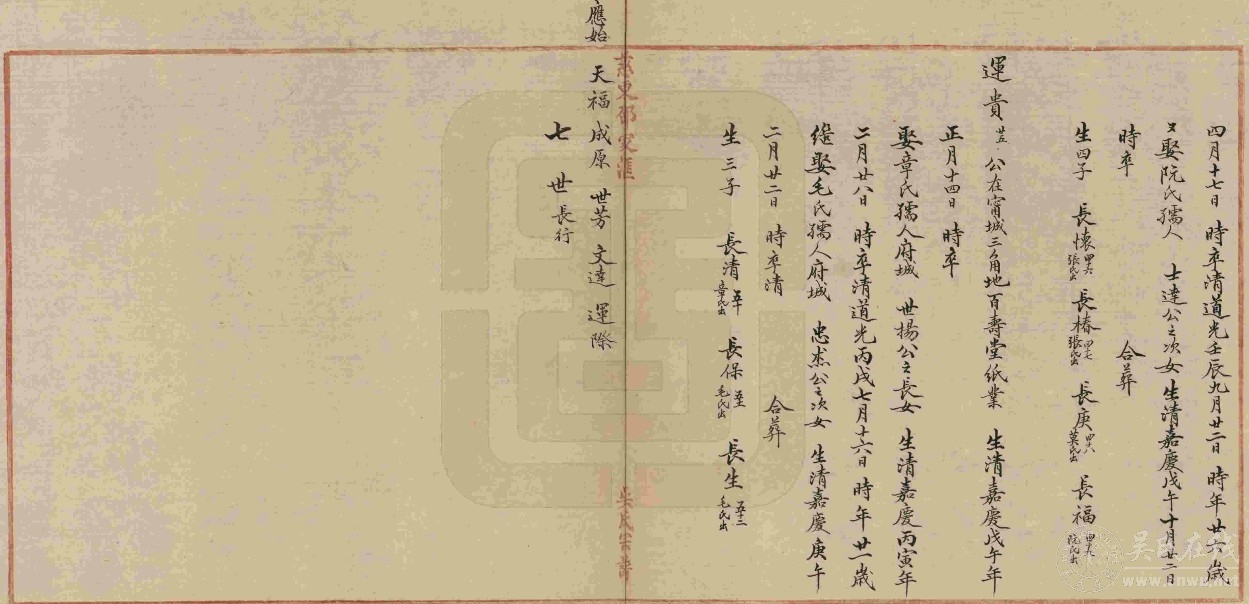 四月十七日 時卒清道光壬辰九月廿二日 時年廿六歲
又娶阮氏孺人 士達公之次女 生清嘉慶戊午十月廿二日
時卒 合葬
生四子 長懷 張氏出 長椿 四七 張氏出 長庚 四八 莫氏出 長福 四九 阮氏出
運貴 廿五 公在甯城三角地百壽堂紙業 生清嘉慶戊午年
正月十四日 時卒
娶章氏孺人府城 世揚公之長女 生清嘉慶丙寅年
二月廿八日 時卒清道光丙戌七月十六日 時年廿一歲
繼娶毛氏孺人府城 忠杰公之次女 生清嘉慶庚午
二月廿二日 時卒清 合葬
生三子 長清 五十 章氏出 長保 毛氏出 長生 五十二 毛氏出
吳氏宗譜
應始 天福 成原 世芳 文達 運際
七世 長行
吳氏在线
www.linwu.net